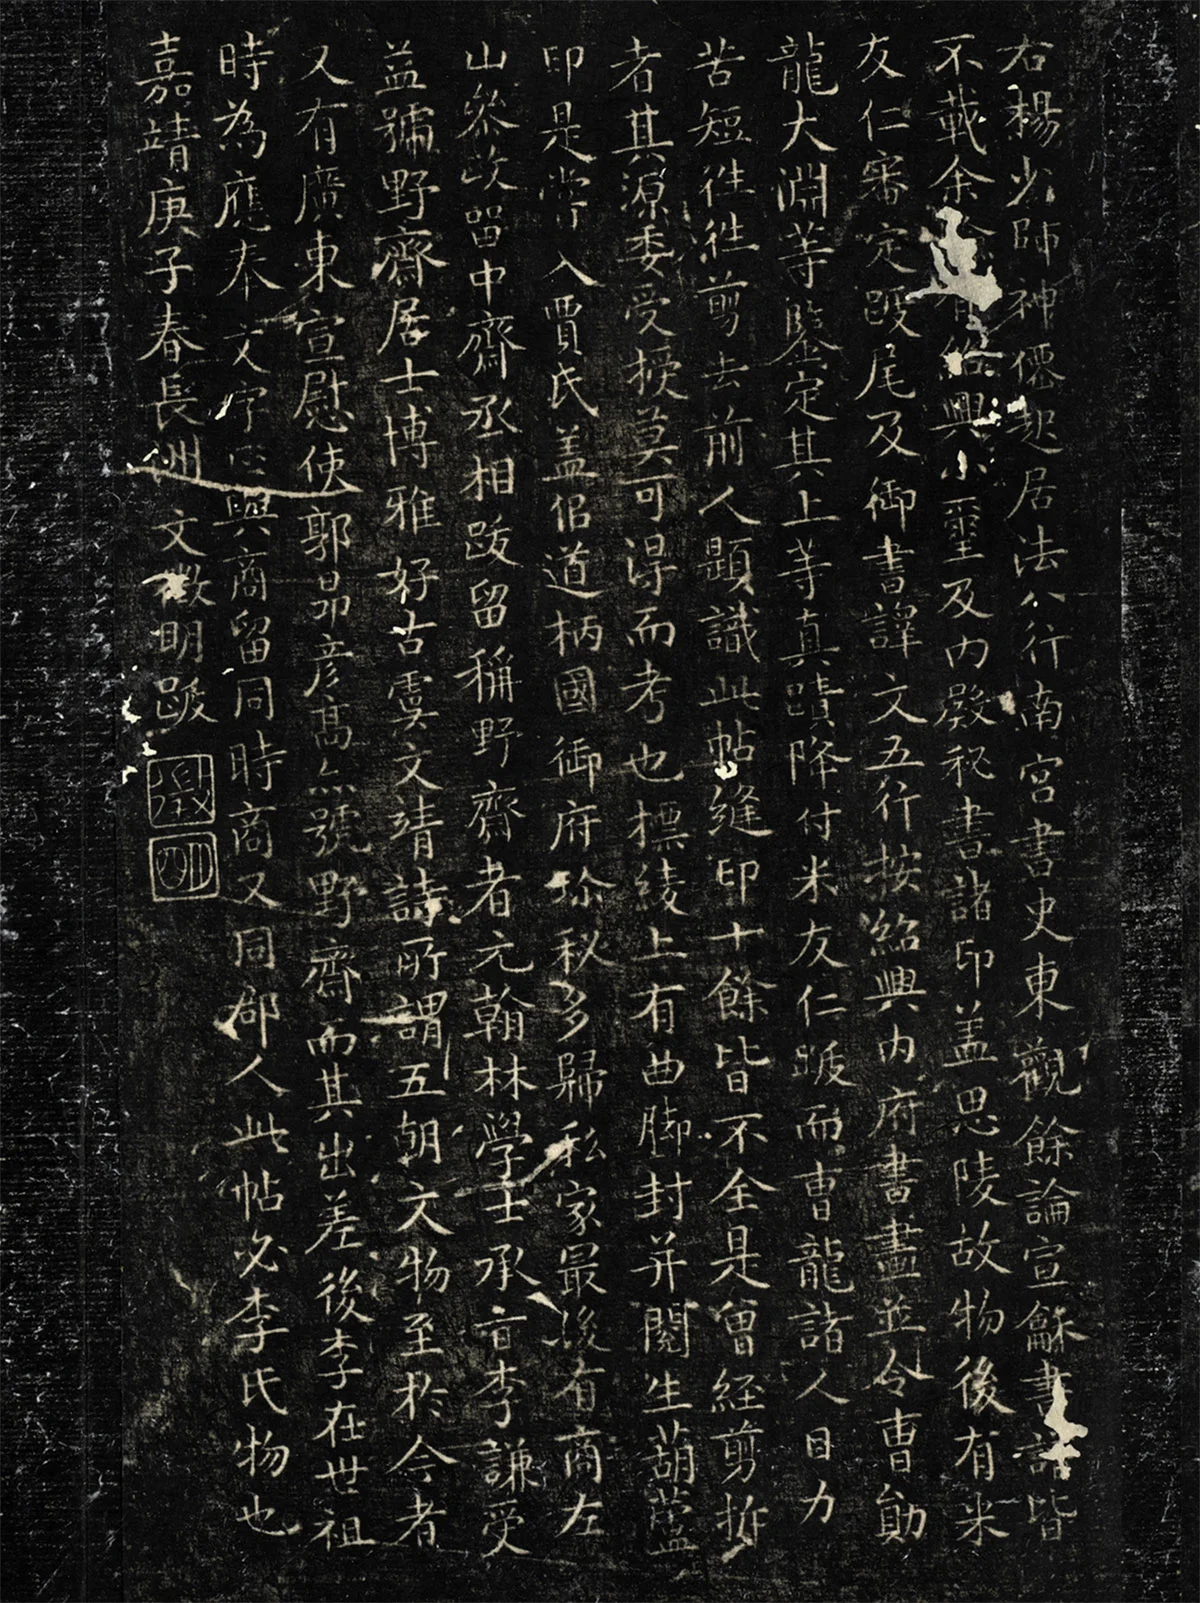 右楊少師神僊起居法八行南宮書史東觀餘論宣龢書譜皆
不載余驗有紹興小璽及內殿秘書諸印蓋思陵故物後有米
友仁審定跋尾及御書譯文五行按紹興內府書畫並令曹勛
龍大淵等鑒定其上等真蹟降付米友仁跋而曹龍諸人目力
苦短往往剪去前人題識此帖縫印十餘皆不全是曾經剪拆
者其源委受授莫可得而考也標綾上有曲腳封并閱生葫蘆
印是常入賈氏蓋侂道柄國御府珍秘多歸私家最後有商左
山參政留中齋丞相跋留稱野齋者元翰林學士承旨李謙受
益號野齋居士博雅好古虞文靖詩所謂五朝文物至於今者
又有廣東宣慰使郭昴彥高亦號野齋而其出差後李在世祖
時為應奉文字正與商留同時商又同郡人此帖必李氏物也
嘉靖庚子春長洲文徵明跋
徵
明